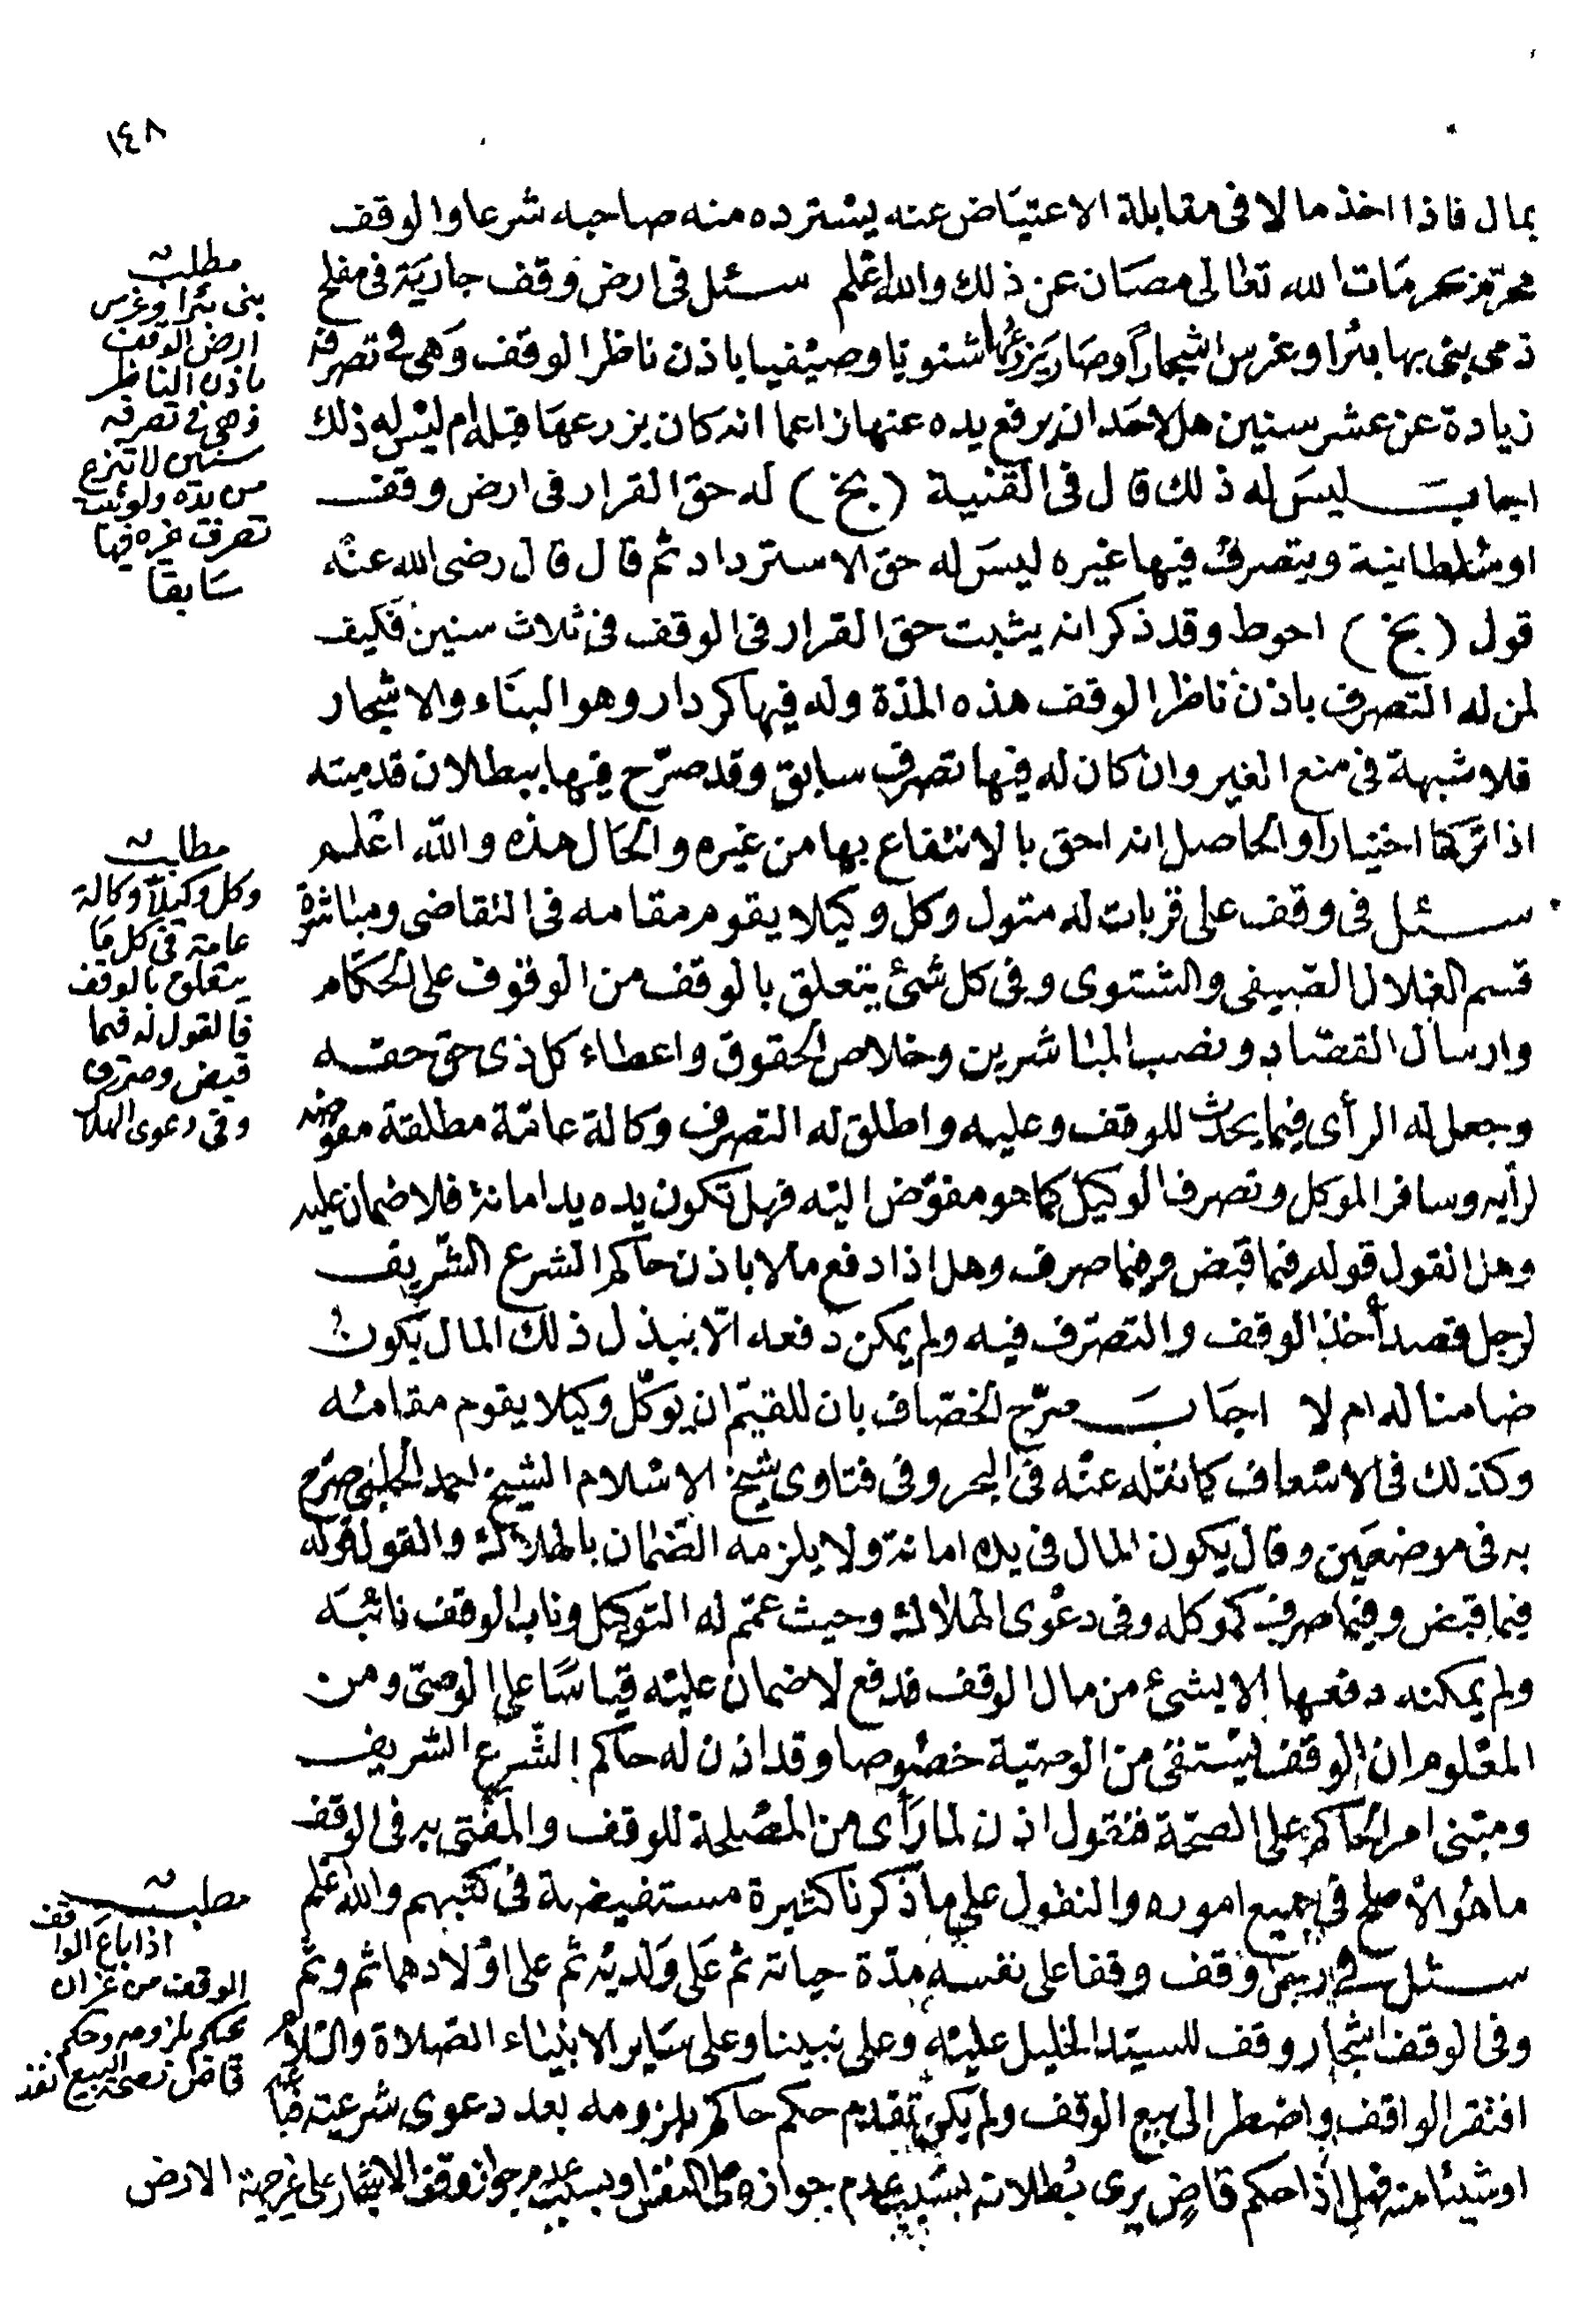 ١٤٨
بمال فاذا اخذ مالا فى مقابلة الاعتياض عنه يسترده منه صاحبه شرعا والوقف
محرم بحرمات الله تعالى مصان عن ذلك والله اعلم سئل فى ارض وقف جارية فى مفلح
ذمى بنى بها بئرا وغرس اشجارا وصار يزرعها شتويا وصيفيا باذن ناظر الوقف وهى فى تصرفه
زيادة عن عشر سنين هل لاحد ان يرفع يده عنها زاعما انه كان يزرعها قبله ام ليس له ذلك
اجاب ليس له ذلك قال فى القنية (بخ) له حق القرار فى ارض وقف
او سلطانية ويتصرف فيها غيره ليس له حق الاسترداد ثم قال قال رضى الله عنه
قول (بخ) احوط وقد ذكر انه يثبت حق القرار فى الوقف فى ثلاث سنين فكيف
لمن له التصرف باذن ناظر الوقف هذه المدة وله فيها كردار وهو البناء والاشجار
فلا شبهة فى منع الغير وان كان له فيها تصرف سابق وقد صرّح فيها ببطلان قدميته
اذا تركها اختيارا والحاصل انه احق بالانتفاع بها من غيره والحال هذه والله اعلم
سئل فى وقف على قربات له متول وكل وكيلا يقوم مقامه فى التقاضى ومباشرة
قسم الغلال الصيفى والشتوى وفى كل شئ يتعلق بالوقف من الوقوف على الحكام
وارسال القصاد ونصب المباشرين وخلاص الحقوق واعطاء كل ذى حق حقه
وجعل له الرأى فيما يحدث للوقف وعليه واطلق له التصرف وكالة عامّة مطلقة مفوضه
لرأيه وسافر الموكل وتصرف الوكيل كما هو مفوّض اليه فهل تكون يده يد امانة فلا ضمان عليه
وهل القول قوله فيما قبض وفيما صرف وهل اذا دفع مالا باذن حاكم الشرع الشريف
لرجل قصد أخذ الوقف والتصرف فيه ولم يمكن دفعه الّا ببذل ذلك المال يكون
ضامنا له ام لا اجاب صرّح الخصّاف بان للقيّم ان يوكّل وكيلا يقوم مقامه
وكذلك فى الاسعاف كما نقله عنه فى البحر وفى فتاوى شيخ الاسلام الشيخ احمد الحلبى صرّح
به فى موضعين وقال يكون المال فى يده امانة ولا يلزمه الضمان بالهلاك والقول قوله
فيما قبض وفيما صرف كموكله وفى دعوى الهلاك وحيث عمّم له التوكيل وناب الوقف نائبة
ولم يمكنه دفعها الا بشئ من مال الوقف فدفع لا ضمان عليه قياسا على الوصى ومن
المعلوم ان الوقف يستقى من الوصية خصوصا وقد اذن له حاكم الشرع الشريف
ومبنى امر الحاكم على الصحّة فنقول اذن لما رأى من المصلحة للوقف والمفتى به فى الوقف
ما هو الاصلح فى جميع اموره والنقول على ما ذكرنا كثيرة مستفيضة فى كتبهم والله اعلم
سئل فى رجل وقف وقفا على نفسه مدّة حياته ثم على ولديه ثم على اولادهما ثم وثم
وفى الوقف اشجار وقف للسيد الخليل عليه وعلى نبينا وعلى سائر الانبياء الصلاة والسلام
افتقر الواقف واضطر الى بيع الوقف ولم يكن تقدم حكم حاكم بلزومه بعد دعوى شرعية فباعه
او شيئا منه فهل اذا حكم قاض يرى بطلانه بسبب عدم جوازه على النفس او بسبب عدم جواز وقف الاشجار على غير جهة الارض
مطلب
بنى بئرا وغرس
ارض الوقف
باذن الناظر
وهى فى تصرفه
سنين لا تنزع
من يده ولو ثبت
تصرف غيره فيها
سابقا
مطلب
وكل وكيلا وكالة
عامة فى كل ما
يتعلق بالوقف
فالقول له فيما
قبض وصرف
وفى دعوى الهلاك
مطلب
اذا باع الواقف
الوقف من غير ان
يحكم بلزومه وحكم
قاض بصحة البيع نفذ